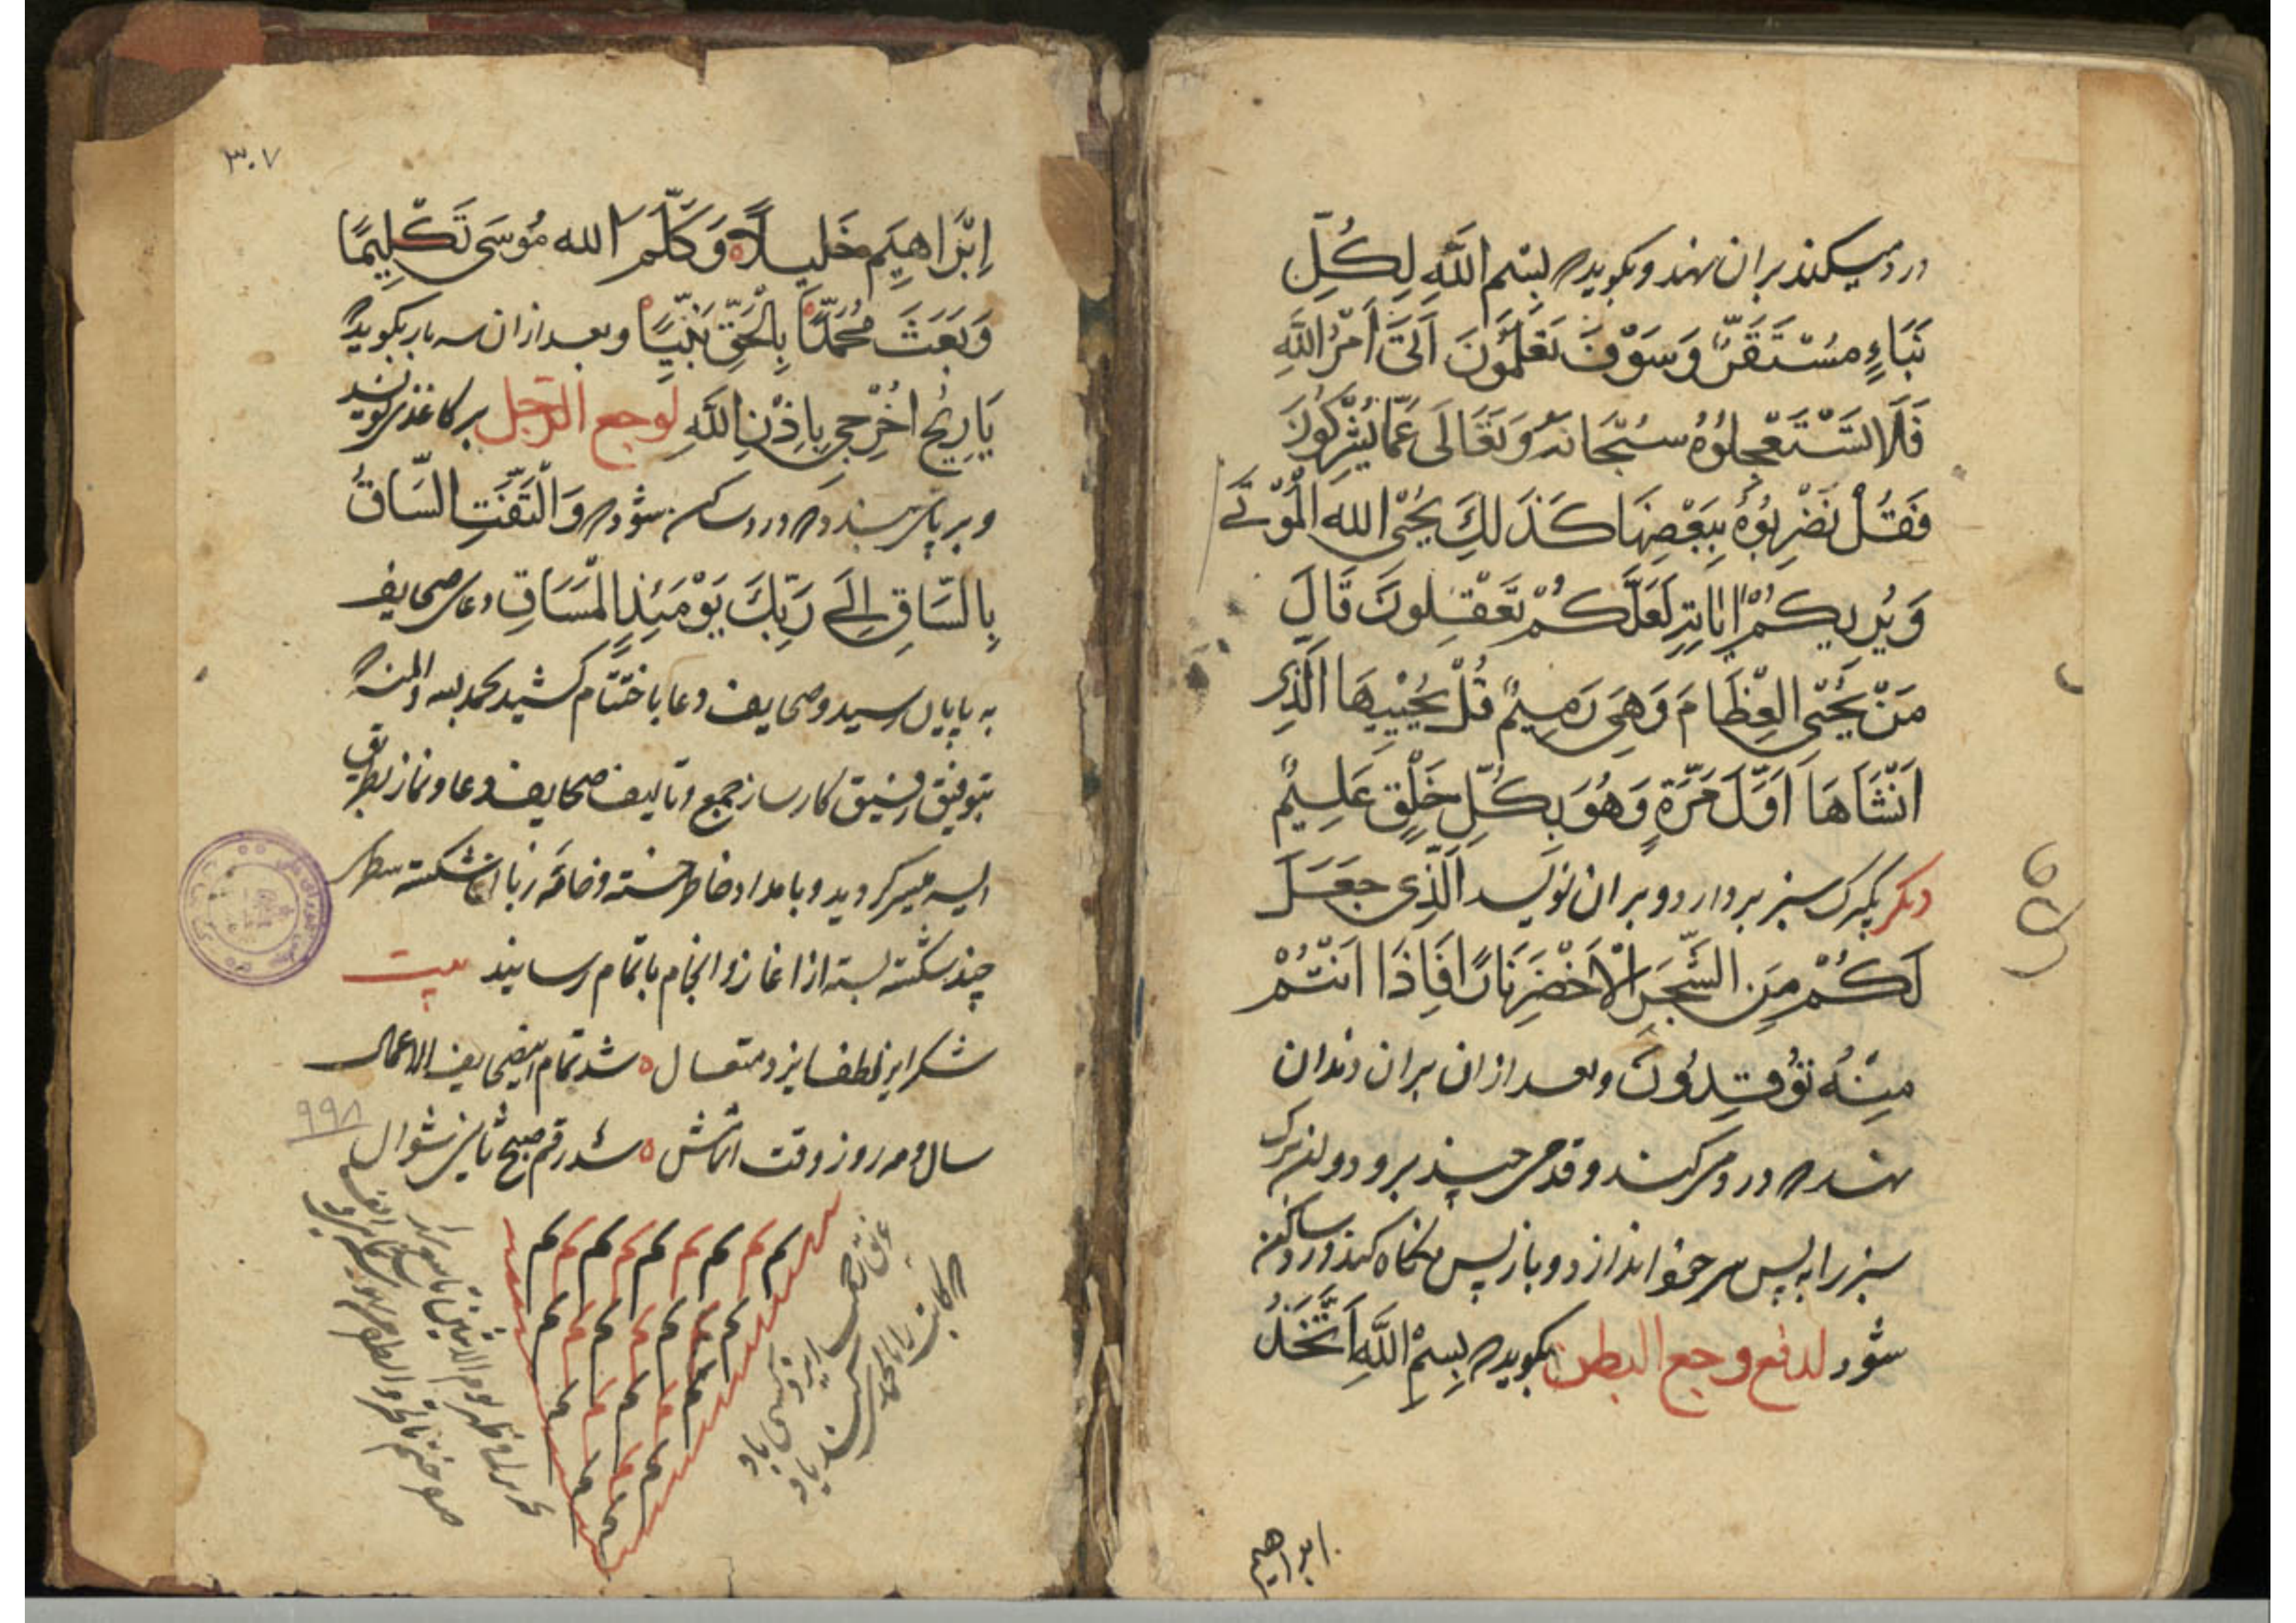 درد میکند بران نهد و بکوید که بِسْمِ اللَّهِ لِكُلِّ
نَبَاءٍ مُسْتَقَرٌّ وَسَوْفَ تَعْلَمُونَ اَتَى اَمْرُ اللَّهِ
فَلَا تَسْتَعْجِلُوهُ سُبْحَانَهُ وَتَعَالَى عَمَّا يُشْرِكُونَ
فَقُلْنَضْرِبُوْهُ بِبَعْضِهَا كَذَلِكَ يُحْيِى الله الْمَوْتَى
وَيُرِيكُمْ اٰيَاتِهِ لَعَلَّكُمْ تَعْقِلُونَ قَالَ
مَنْ يُحْيِى الْعِظَامَ وَهِىَ رَمِيمٌ قُلْ يُحْيِيهَا الَّذِى
اَنْشَاَهَا اَوَّلَ مَرَّةٍ وَهُوَ بِكُلِّ خَلْقٍ عَلِيمٌ
دیکر برک سبز بردارد و بران نویسد الَّذِى جَعَلَ
لَكُمْ مِنَ الشَّجَرِ الْاَخْضَرِ نَارًا فَاِذَا اَنْتُمْ
مِنْهُ تُوقِدُونَ و بعد ازان بران دندان
نهد که درد میکند و قدمی چند برود و ان برک
سبز را به پس سر خود اندازد و باز پس نکاه نکند درد ساکن
شود لدفع وجع البطن بکوید که بِسْمِ اللَّهِ اتَّخَذَ
ابراهیم
٣٠٧
اِبْرَاهِيمَ خَلِيلاً وَكَلَّمَ الله مُوسَى تَكْلِيمًا
وَبَعَثَ مُحَمَّدًا بِالْحَقِّ نَبِيًّا و بعد ازان سه بار بکوید که
يَا رِيحُ اخْرُجِى بِاِذْنِ اللَّهِ لوجع الرجل بر کاغذی نویسد
و بر پای بندد که درد ساکن شود که وَالْتَفَّتِ السَّاقُ
بِالسَّاقِ اِلَى رَبِّكَ يَوْمَئِذٍ الْمَسَاقِ دعای صحایف
به پایان رسید و صحایف دعا باختتام کشید بحمد لله والمنه که
بتوفیق رفیق کارساز جمع و تالیف صحایف دعا و نماز بطریق
میسر کردید و بامداد خاطر خسته و خامه زبان شکسته سطری
چند شکسته بسته از اغاز و انجام باتمام رسانید بیت
شکر ایزد لطف ایزد متعال شد تمام این صحایف الاعمال
سال و مه روز و وقت اتمامش شد رقم صبح ثامن شوال
٩٩٨